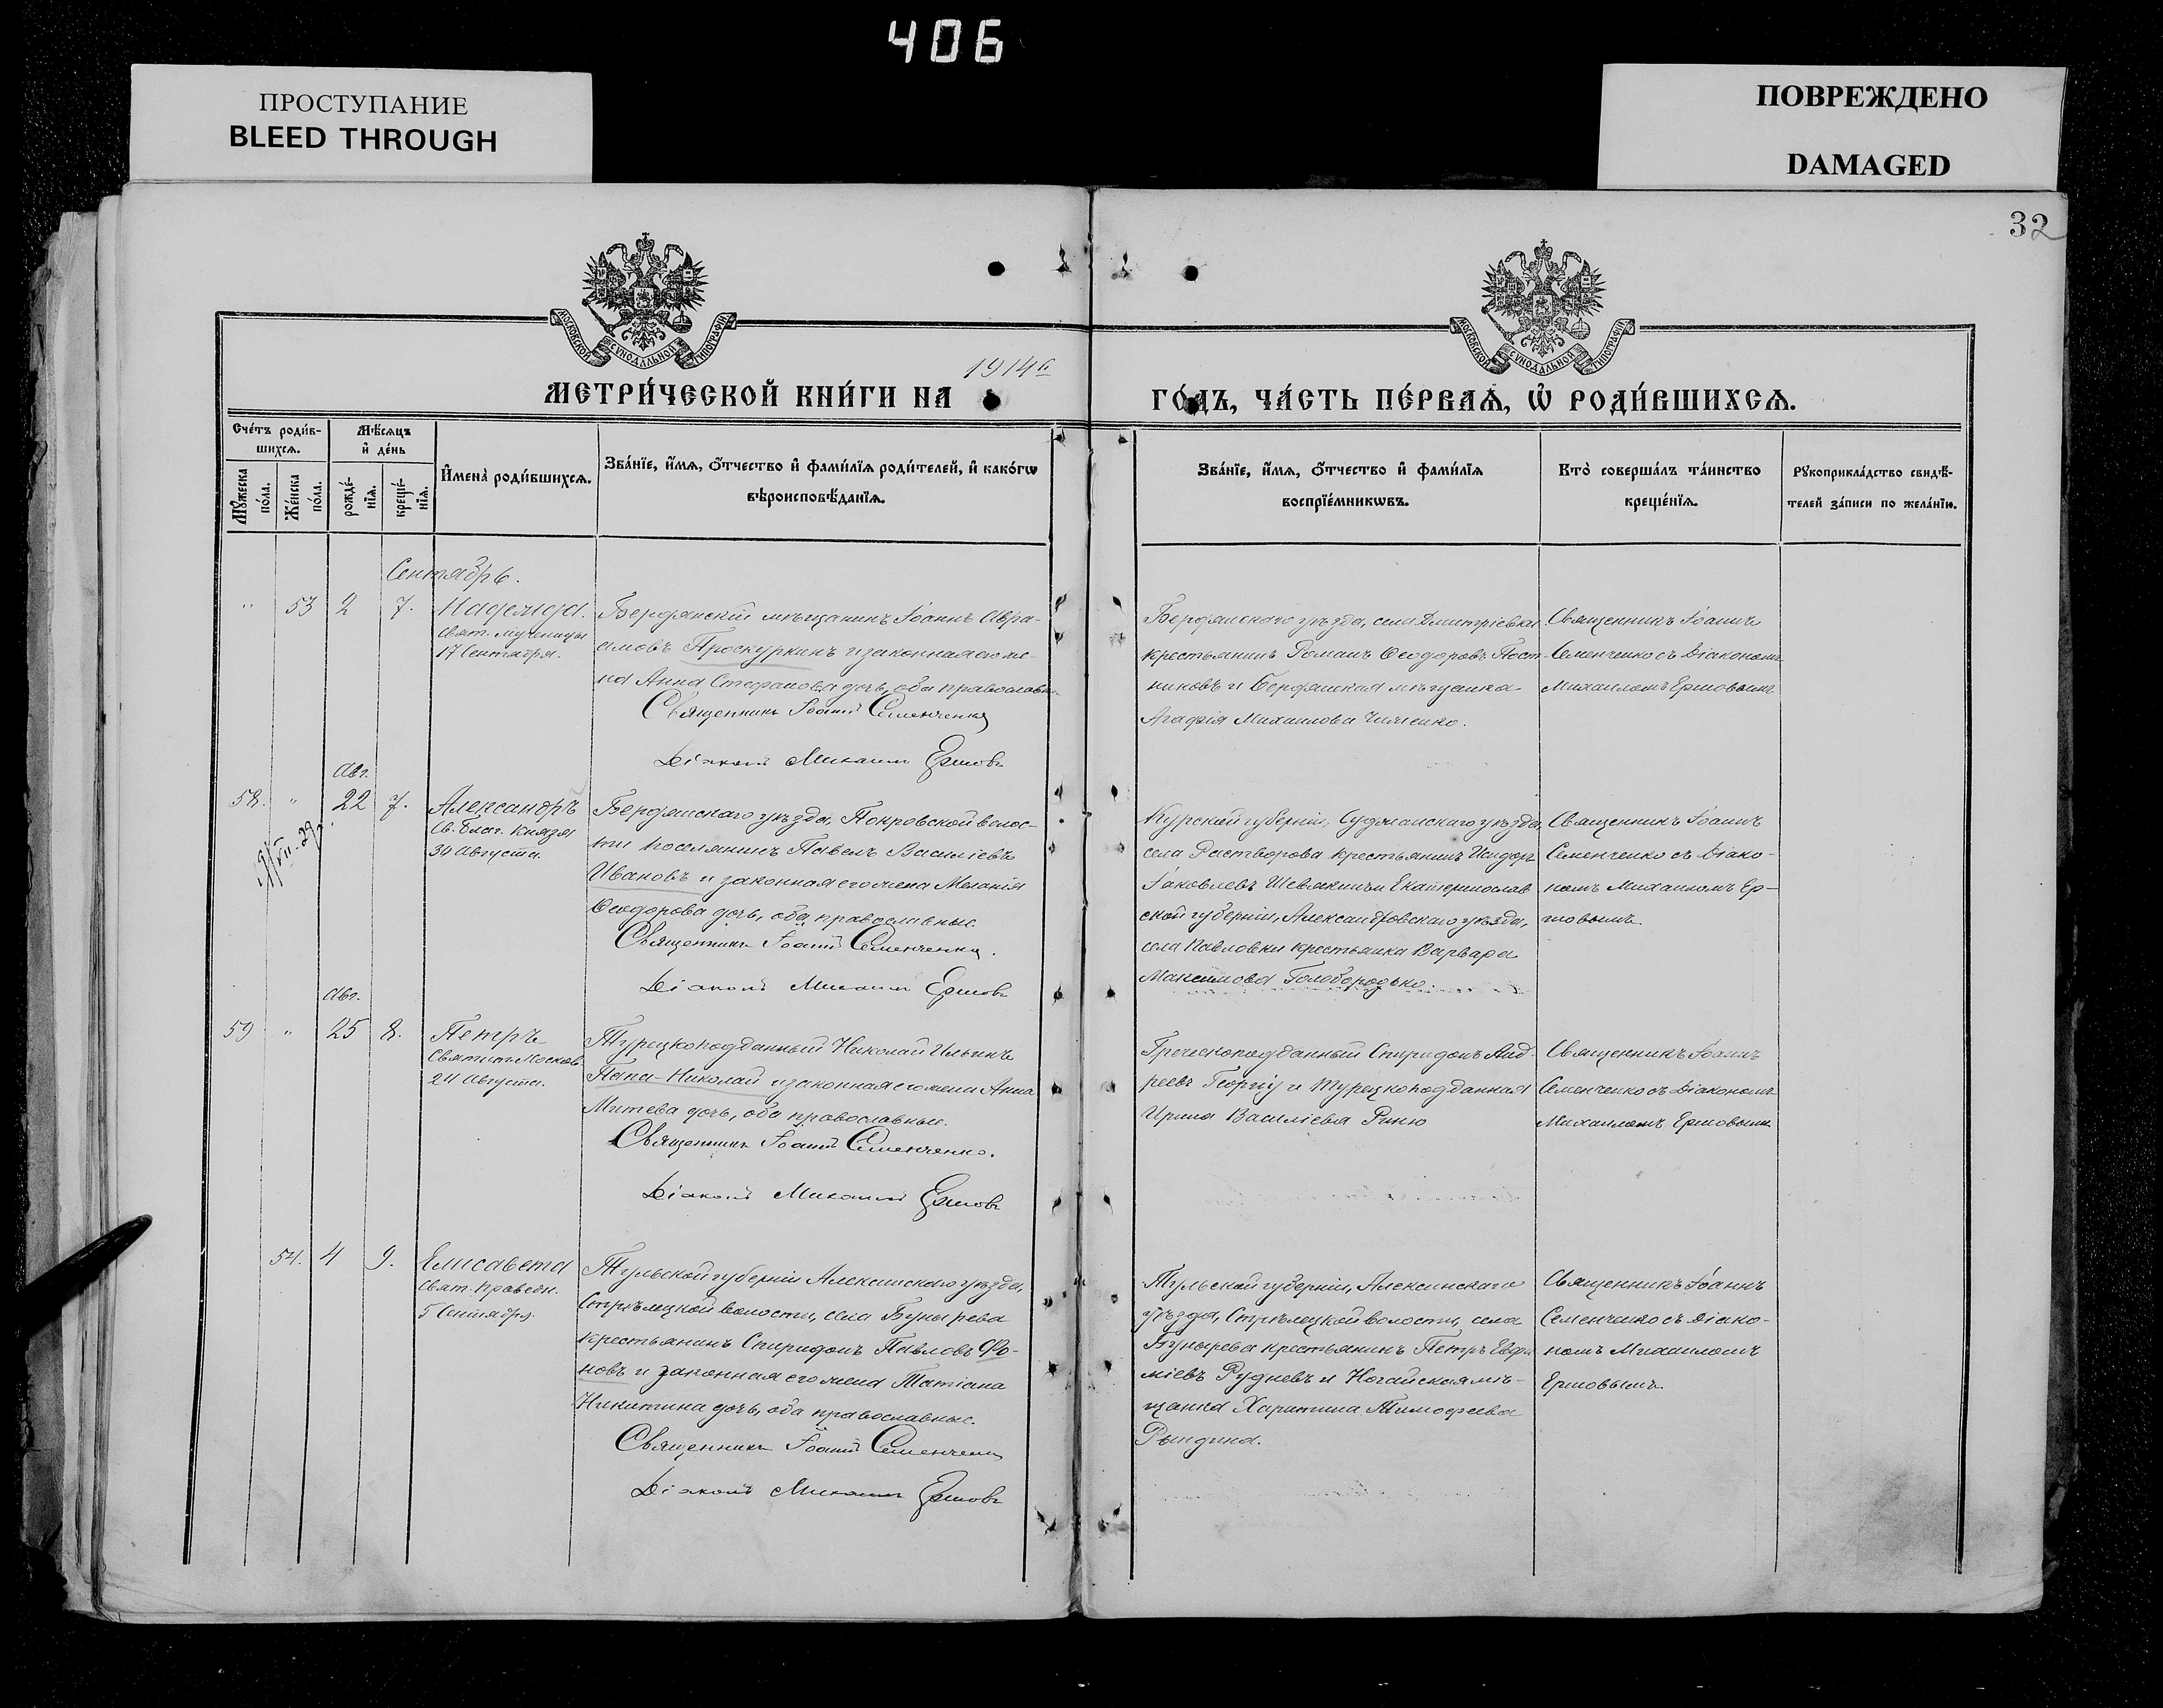 406
ПРОСТУПАНИЕ
BLEED THROUGH
ПОВРЕЖДЕНО
DAMAGED
32
МОСКОВСКОЙ СѴНОДАЛЬНОЙ ТИПОГРАФІИ
МОСКОВСКОЙ СѴНОДАЛЬНОЙ ТИПОГРАФІИ
1914 г.
МЕТРИ́ЧЕСКОЙ КНИ́ГИ НА
ГО́ДЪ, ЧА́СТЬ ПЕ́РВАѦ, Ѡ҆ РОДИ́ВШИХСѦ.
Сче́тъ роди́в-
шихсѧ.
Мꙋ́жеска по́ла.
Же́нска по́ла.
Мѣ́сѧцъ
и҆ де́нь
рожде́-
нїѧ.
креще́-
нїѧ.
И҆мена̀ роди́вшихсѧ.
Зва́нїе, и҆́мѧ, ѻ҆́тчество и҆ фами́лїѧ роди́телей, и҆ како́гѡ
вѣроисповѣ́данїѧ.
Зва́нїе, и҆́мѧ, ѻ҆́тчество и҆ фами́лїѧ
воспрїе́мникѡвъ.
Кто̀ соверша́лъ та́инство
креще́нїѧ.
Рꙋкоприкла́дство свидѣ́-
телей за́писи по жела́нїю.
Сентябрь.
" 53 2 7. Надежда.
Свят. мученицы
17 Сентября.
Бердянскій мѣщанинъ Іоаннъ Авра-
амовъ Проскуркинъ и законная его же-
на Анна Стефанова дочь, оба православн.
Священникъ Іоаннъ Семенченко
Діаконъ Михаилъ Ершовъ
Бердянскаго уѣзда, села Дмитріевки
крестьянинъ Романъ Ѳеодоровъ Пост-
никовъ и Бердянская мѣщанка
Агафія Михаилова
Священникъ Іоаннъ
Семенченко съ Діакономъ
Михаиломъ Ершовымъ
Авг.
58. " 22 7. Александръ
Св. Благ. Князя
30 Августа.
Бердянскаго уѣзда, Покровской волос-
ти поселянинъ Павелъ Василіевъ
Ивановъ и законная его жена Меланія
Ѳеодорова дочь, оба православные.
Священникъ Іоаннъ Семенченко.
Діаконъ Михаилъ Ершовъ
Курской губерніи, Суджанскаго уѣзда,
села Растворова крестьянинъ Исидоръ
Іаковлевъ и Екатеринослав
ской губерніи, Александровскаго уѣзда,
села Павловки крестьянка Варвара
Максимова Голобородько.
Священникъ Іоаннъ
Семенченко съ Діако-
номъ Михаиломъ Ер-
шовымъ.
Авг.
59 " 25 8. Петръ
Святит. Москов.
24 Августа.
Турецкоподданный Николай Ильинъ
Папа-Николай и законная его жена Анна
Митева дочь, оба православные.
Священникъ Іоаннъ Семенченко.
Діаконъ Михаилъ Ершовъ
Греческоподданный Спиридонъ Анд-
реевъ Георгіу и турецкоподданная
Ирина Василіева
Священникъ Іоаннъ
Семенченко съ Діакономъ
Михаиломъ Ершовымъ
54. 4 9. Елисавета
Свят. праведн.
5 Сентября.
Тульской губерніи Алексинскаго уѣзда,
Стрѣлецкой волости, села Бунырева
крестьянинъ Спиридонъ Павловъ Фо-
новъ и законная его жена Татіана
Никитина дочь, оба православные.
Священникъ Іоаннъ Семенченко
Діаконъ Михаилъ Ершовъ
Тульской губерніи, Алексинскаго
уѣзда, Стрѣлецкой волости, села
Бунырева крестьянинъ Петръ Евфи
міевъ Рудневъ и Ногайская мѣ-
щанка Харитина Тимофеева
Рындина.
Священникъ Іоаннъ
Семенченко съ Діако-
номъ Михаиломъ
Ершовымъ.